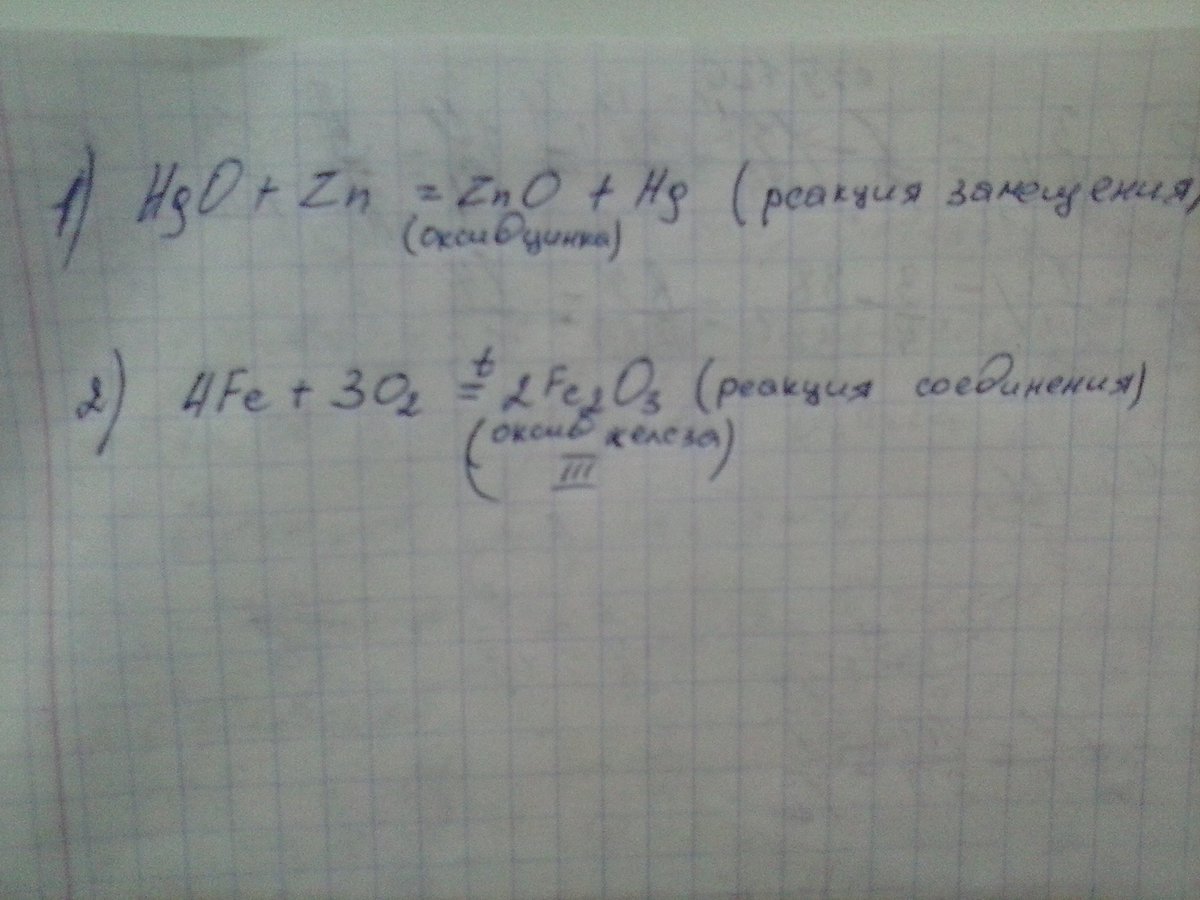 1) HgO + Zn = ZnO + Hg (реакция замещения)
(оксид цинка)
2) 4Fe + 3O₂ =ᵗ 2Fe₂O₃ (реакция соединения)
(оксид железа)
III